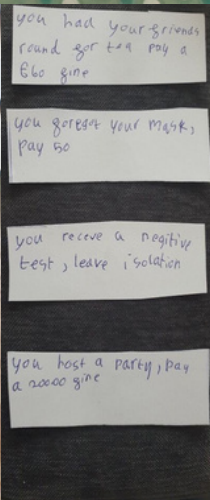 you had your griends
round gor tea pay a
£60 gine
you gorgot your mask,
pay 50
you receve a negitive
test, leave isolation
you host a party, pay
a 20000 gine